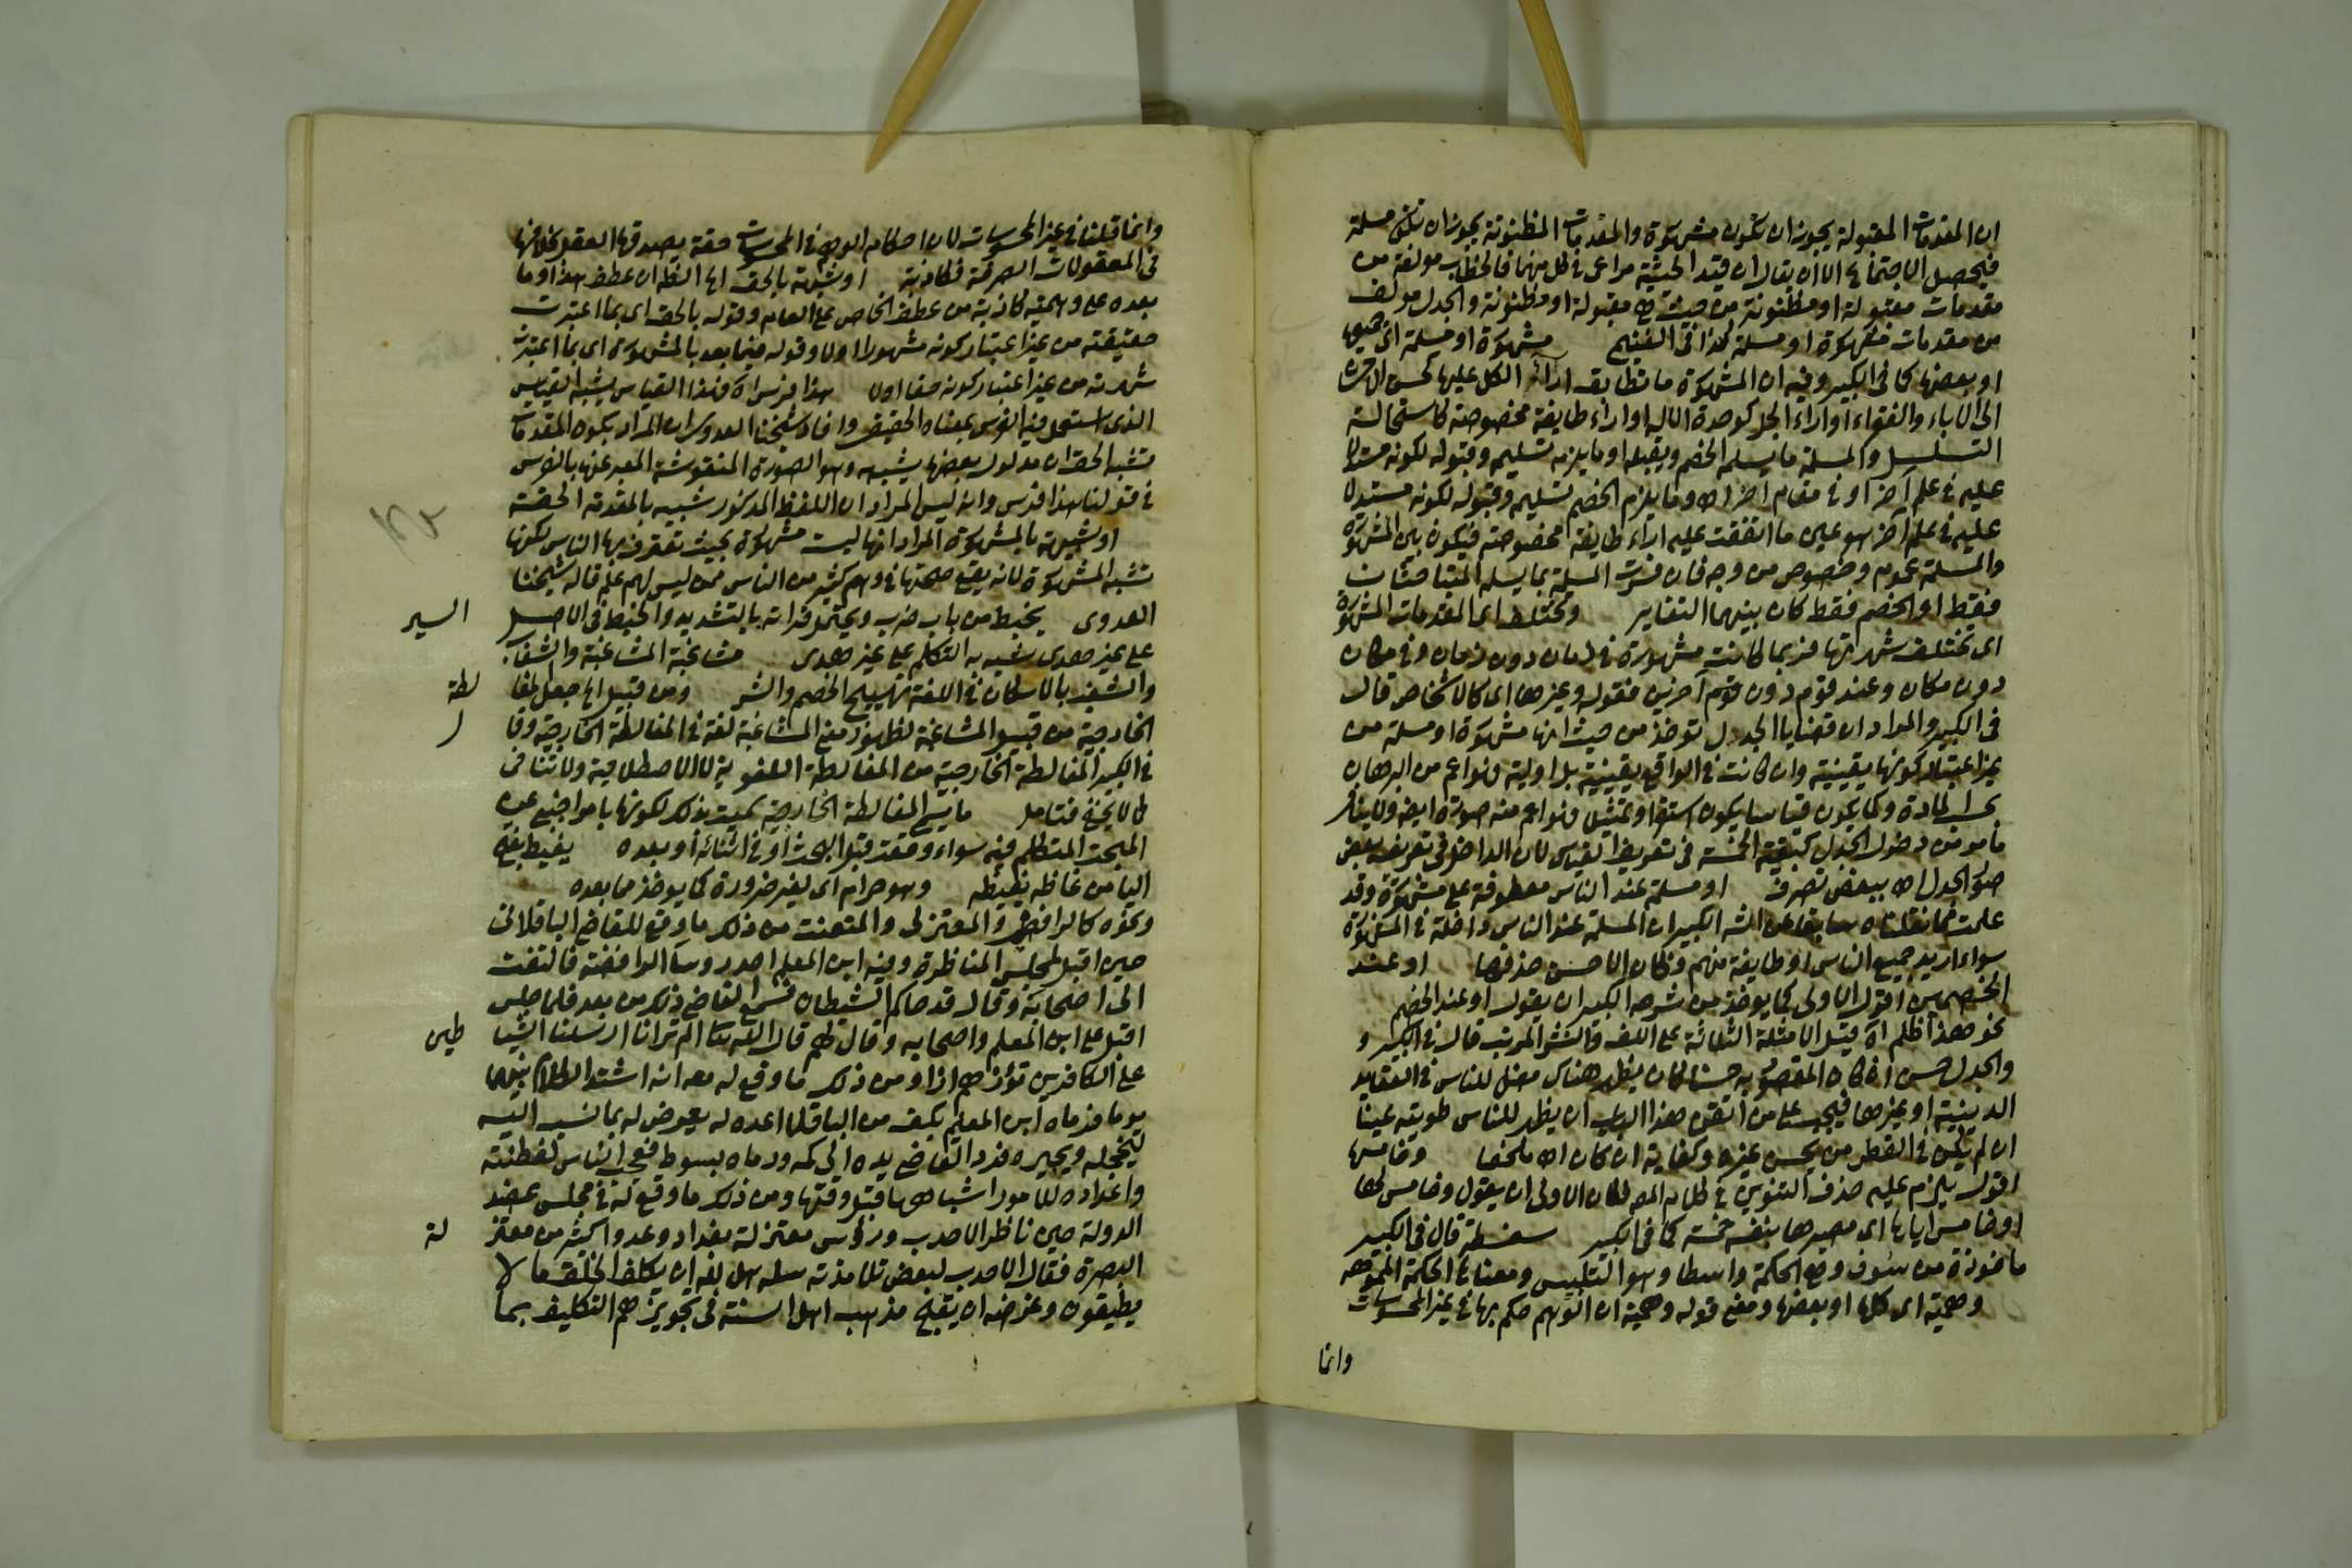 ان المقدمات المقبولة يجوز ان تكون مشهورة والمقدمات المظنونة يجوز ان تكون مسلمة
فيحصل الاجتماع الا ان يقال ان قيد الحيثية مراعى في كل منهما فالخطاب مولفة من
مقدمات مقبولة او مظنونة من حيث هي مقبولة او مظنونة والجدل مولف
من مقدمات مشهورة او مسلمة كذا في مشهورة او مسلمة اى جميعها
او بعضها كما في الكبير وفيه ان المشهورة ما تطابق اراء الكل عليها كحسن الاحسان
الى الاباء والفقراء او اراء الجل كوحدة الاله او اراء طايفة مخصوصة كاستحالة
التسلسل والمسلمة ما يسلمه الخصم ويقبله او ما يلزمه تسليمه وقبوله لكونه مستدلا
عليه في علم آخر او في مقام اخر اه وما يلزم الخصم تسليمه وقبوله لكونه مستدلا
عليه في علم آخر هو عين ما اتفقت عليه اراء طايفة مخصوصة فيكون بين المشهورة
والمسلمة عموم وخصوص من وجه فان فسرت المسلمة بما يسلمه المتباحثان
فقط او الخصم فقط كان بينهما التغاير وتختلف اى المقدمات المشهورة
اى تختلف شهرتها فربما كانت مشهورة في زمان دون زمان وفي مكان
دون مكان وعند قوم دون قوم آخرين فقوله وغيرها اى كالاشخاص قال
في الكبير والمراد ان قضايا الجدل تؤخذ من حيث انها مشهورة او مسلمة من
غير اعتبار كونها يقينية وان كانت في الواقع يقينية بل اولية فهو اعم من البرهان
بحسب المادة وكما يكون قياسا يكون استقراء وتمثيل فهو اعم منه صورة ايضا ولا ينافي
ما مر من دخول الجدل كبقية الخمسة في تعريف القياس لان الداخل في تعريفه بعض
صور الجدل اه ببعض تصرف او مسلمة عند الناس معطوفة على مشهورة وقد
علمت مما نقلناه سابقا عن الشه الكبير ان المسلمة عند الناس داخلة في المشهورة
سواء اريد جميع الناس او طايفة منهم وكان الاحسن حذفها او عند
الخصمين اقول الاولى كما يوخذ من شرحه الكبير ان يقول او عند الخصم
نحو هذا ظلم اه قيل الامثلة الثلاثة على اللف والنشر المرتب قال في الكبير و
والجدل حسن ان كان المقصود به حسنا كان يظهر هناك مضل للناس في العقايد
الدينية او غيرها فيجب على من اتقن هذا الباب ان يظهر للناس طويته عينا
ان لم يكن في القطر من يحسن غيره وكفاية ان كان اه ملخصا وخامسها
اقول يلزم عليه حذف التنوين في كلام المص فكان الاولى ان يقول وخامس لها
او خامس اياها اى مصيرها بنفسه خمسة كما في الكبير سفسطة قال في الكبير
ماخوذة من سوف وهو الحكمة واسطا وهو التلبيس ومعناها الحكمة المموهة
وهمية اى كلها او بعضها ومعنى قوله وهمية ان الوهم حكم بها في غير المحسوسات
وانما
وانما قيلنا في غير المحسوسات لان احكام الوهم في المحسوسات حقة يصدقها العقل بخلافها
في المعقولات الصرفة فكاذبة او شبيهة بالحق اه الظه ان عطف هذا وما
بعده على وهمية كاذبة من عطف الخاص على العام وقوله بالحق اى بما اعتبرت
حقيقته من غير اعتبار كونه مشهورا اولا وقوله فيما بعد بالمشهورة اى بما اعتبرت
شهرته من غير اعتبار كونه حقا اولا هذا فرس اه فهذا القياس يشبه القياس
الذى استعمل فيه الفرس بمعناه الحقيقي وافاد شيخنا العدوى ان المراد بكون المقدمات
تشبه الحق ان مدلول بعضها يشبهه وهو الصورة المنقوشة المعبر عنها بالفرس
في قولنا هذا فرس وانه ليس المراد ان اللفظ المذكور شبيه بالمقدمة الحقة
او شبيهة بالمشهورة المراد انها ليست مشهورة بحيث تعترف بها الناس لكنها
تشبه المشهورة لانه يقع صحتها في وهم كثير من الناس ممن ليس لهم علم قاله شيخنا
العدوى يخبط من باب ضرب ويحتمل قراته بالتشديد والخبط في الاصل السير
على غير هدى شبه به التكلم على غير هدى مشاغبة المشاغبة والشغاب
والشغب بالاسكان في اللغة تهييج الخصم والشر ومن قبيل اه جعل المغا لطة
الخارجية من قبيل المشاغبة لظهور معنى المشاغبة لغة في المغالطة الخارجية وقا ل
في الكبير المغالطة الخارجية من المغالطة اللغوية لا الاصطلاحية ولا تنافى
كما لا يخفى فتامل ما يسمى المغالطة الخارجية سميت بذلك لكونها بامر اجنبى عن
المبحث المتكلم فيه سواء وقعت قبل البحث او في اثنائه او بعده يغيظ بفتح
اليا من غاظه يغيظه وهو حرام اى لغير ضرورة كما يوخذ مما بعده
ونحوه كالرافضى والمعتزلى والمتعنت من ذلك ما وقع للقاضى الباقلانى
حين اقبل لمجلس المناظرة وفيه ابن المعلم احد روسا الرافضة فالتفت
الى اصحابه وقال قد جاكم الشيطان فسمع القاضى ذلك من بعد فلما جلس
اقبل على ابن المعلم واصحابه وقال لهم قال الله تعا الم تر انا ارسلنا الشيا طين
على الكافرين تؤزهم ازا ومن ذلك ما وقع له معه انه اشتد الكلام بينهما
يوما فرماه ابن المعلم بكف من الباقلا اعده له يعرض له بما نسب اليه
ليخجله ويحيره فرد القاضى يده الى كمه ورماه بسوط فعجب الناس لفطنته
واعداده للامور اشباهها قبل وقتها ومن ذلك ما وقع له في مجلس عضد
الدولة حين ناظر الاحدب ورؤس معتزلة بغداد وعدوا كثير من معتز لة
البصرة فقال الاحدب لبعض تلامذته سله هل لله ان يكلف الخلق ما لا
يطيقون وغرضه ان يقبح مذهب اهل السنة في تجويزهم التكليف بما